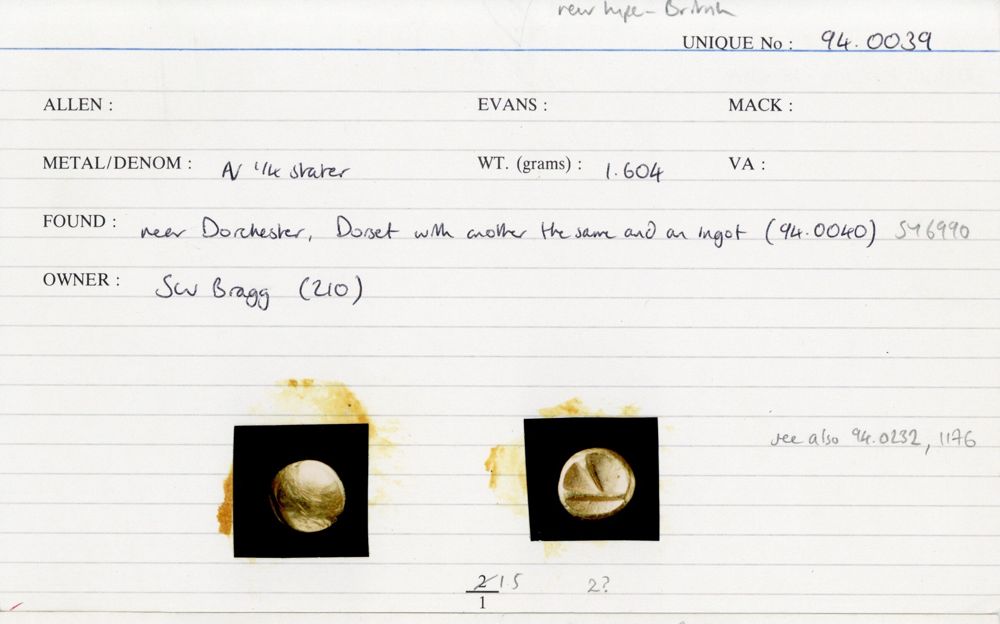 new type - British
UNIQUE No : 94.0039
ALLEN : EVANS : MACK :
METAL/DENOM : AV 1/4 stater WT. (grams) : 1.604 VA :
FOUND : near Dorchester, Dorset with another the same and an ingot (94.0040) SY6990
OWNER : SW Bragg (210)
see also 94.0232, 1176
2 1.5 2?
1